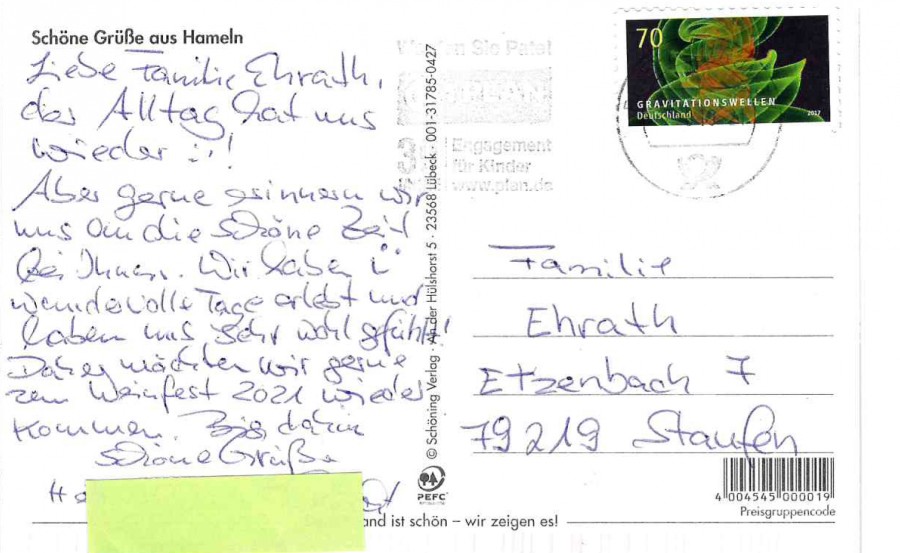 Schöne Grüße aus Hameln
Liebe Familie Ehrath,
der Alltag hat uns
wieder :-!
Aber gerne erinnern wir
uns an die schöne Zeit
bei Ihnen. Wir haben
wundervolle Tage erlebt und
haben uns sehr wohl gefühlt!
Daher möchten wir gerne
zum Weinfest 2021 wieder
kommen. Bis dahin
schöne Grüße
and ist schön – wir zeigen es!
© Schöning Verlag · An der Hülshorst 5 · 23568 Lübeck · 001-31785-0427
PEFC
Werden Sie Pate!
PLAN
Engagement
für Kinder
www.plan.de
70
GRAVITATIONSWELLEN
Deutschland 2017
Familie
Ehrath
Etzenbach 7
79219 Staufen
4 004545 000019
Preisgruppencode